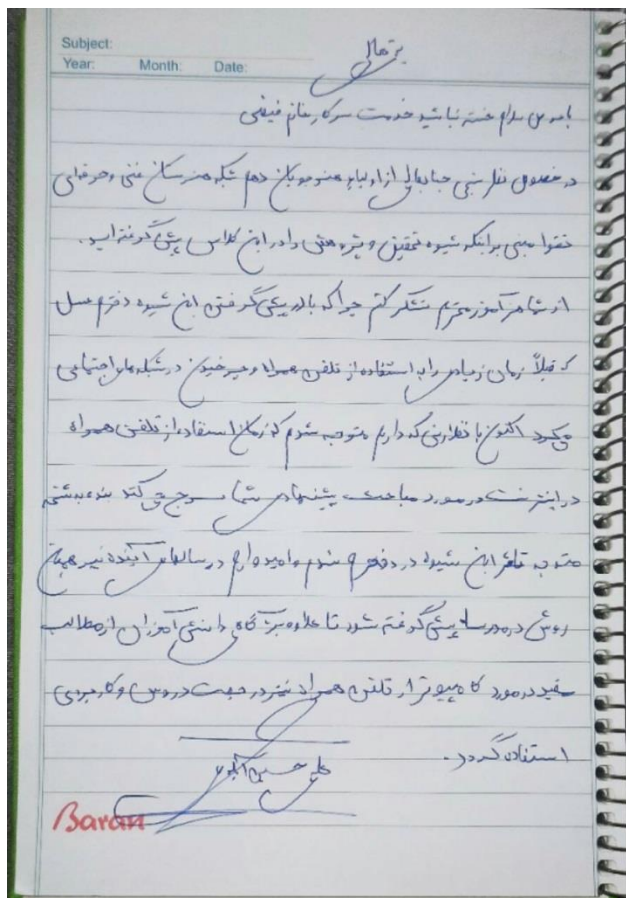 Subject:
Year: Month: Date:
با عرض سلام خسته نباشید خدمت سرکار خانم فیضی
در خصوص نظر سنجی جنابعالی از اولیاء هنرجویان دهم شبکه هنرستان فنی و حرفه‌ای
تقوا مبنی بر اینکه شیوه تحقیق و پژوهش را در این کلاس پیش گرفته اید.
از شما هنرآموز محترم تشکر کنم چرا که با در پیش گرفتن این شیوه دخترم عسل
که قبلاً زمان زیادی را به استفاده از تلفن همراه و چرخیدن در شبکه های اجتماعی
می‌کرد اکنون با نظارتی که دارم متوجه شدم که زمان استفاده از تلفن همراه
در اینترنت در مورد مباحث پیشنهادی شما سرچ می کند بنده
متوجه تاثیر این شیوه در دخترم شدم و امیدوارم در سالهای آینده نیز همین
روش در مدرسه پیش گرفته شود تا علاوه بر آگاهی دانش آموزان از مطالب
مفید در مورد کامپیوتر از تلفن همراه نیز در جهت دروس و کاربردی
استفاده گردد.
علی حسین
Baran